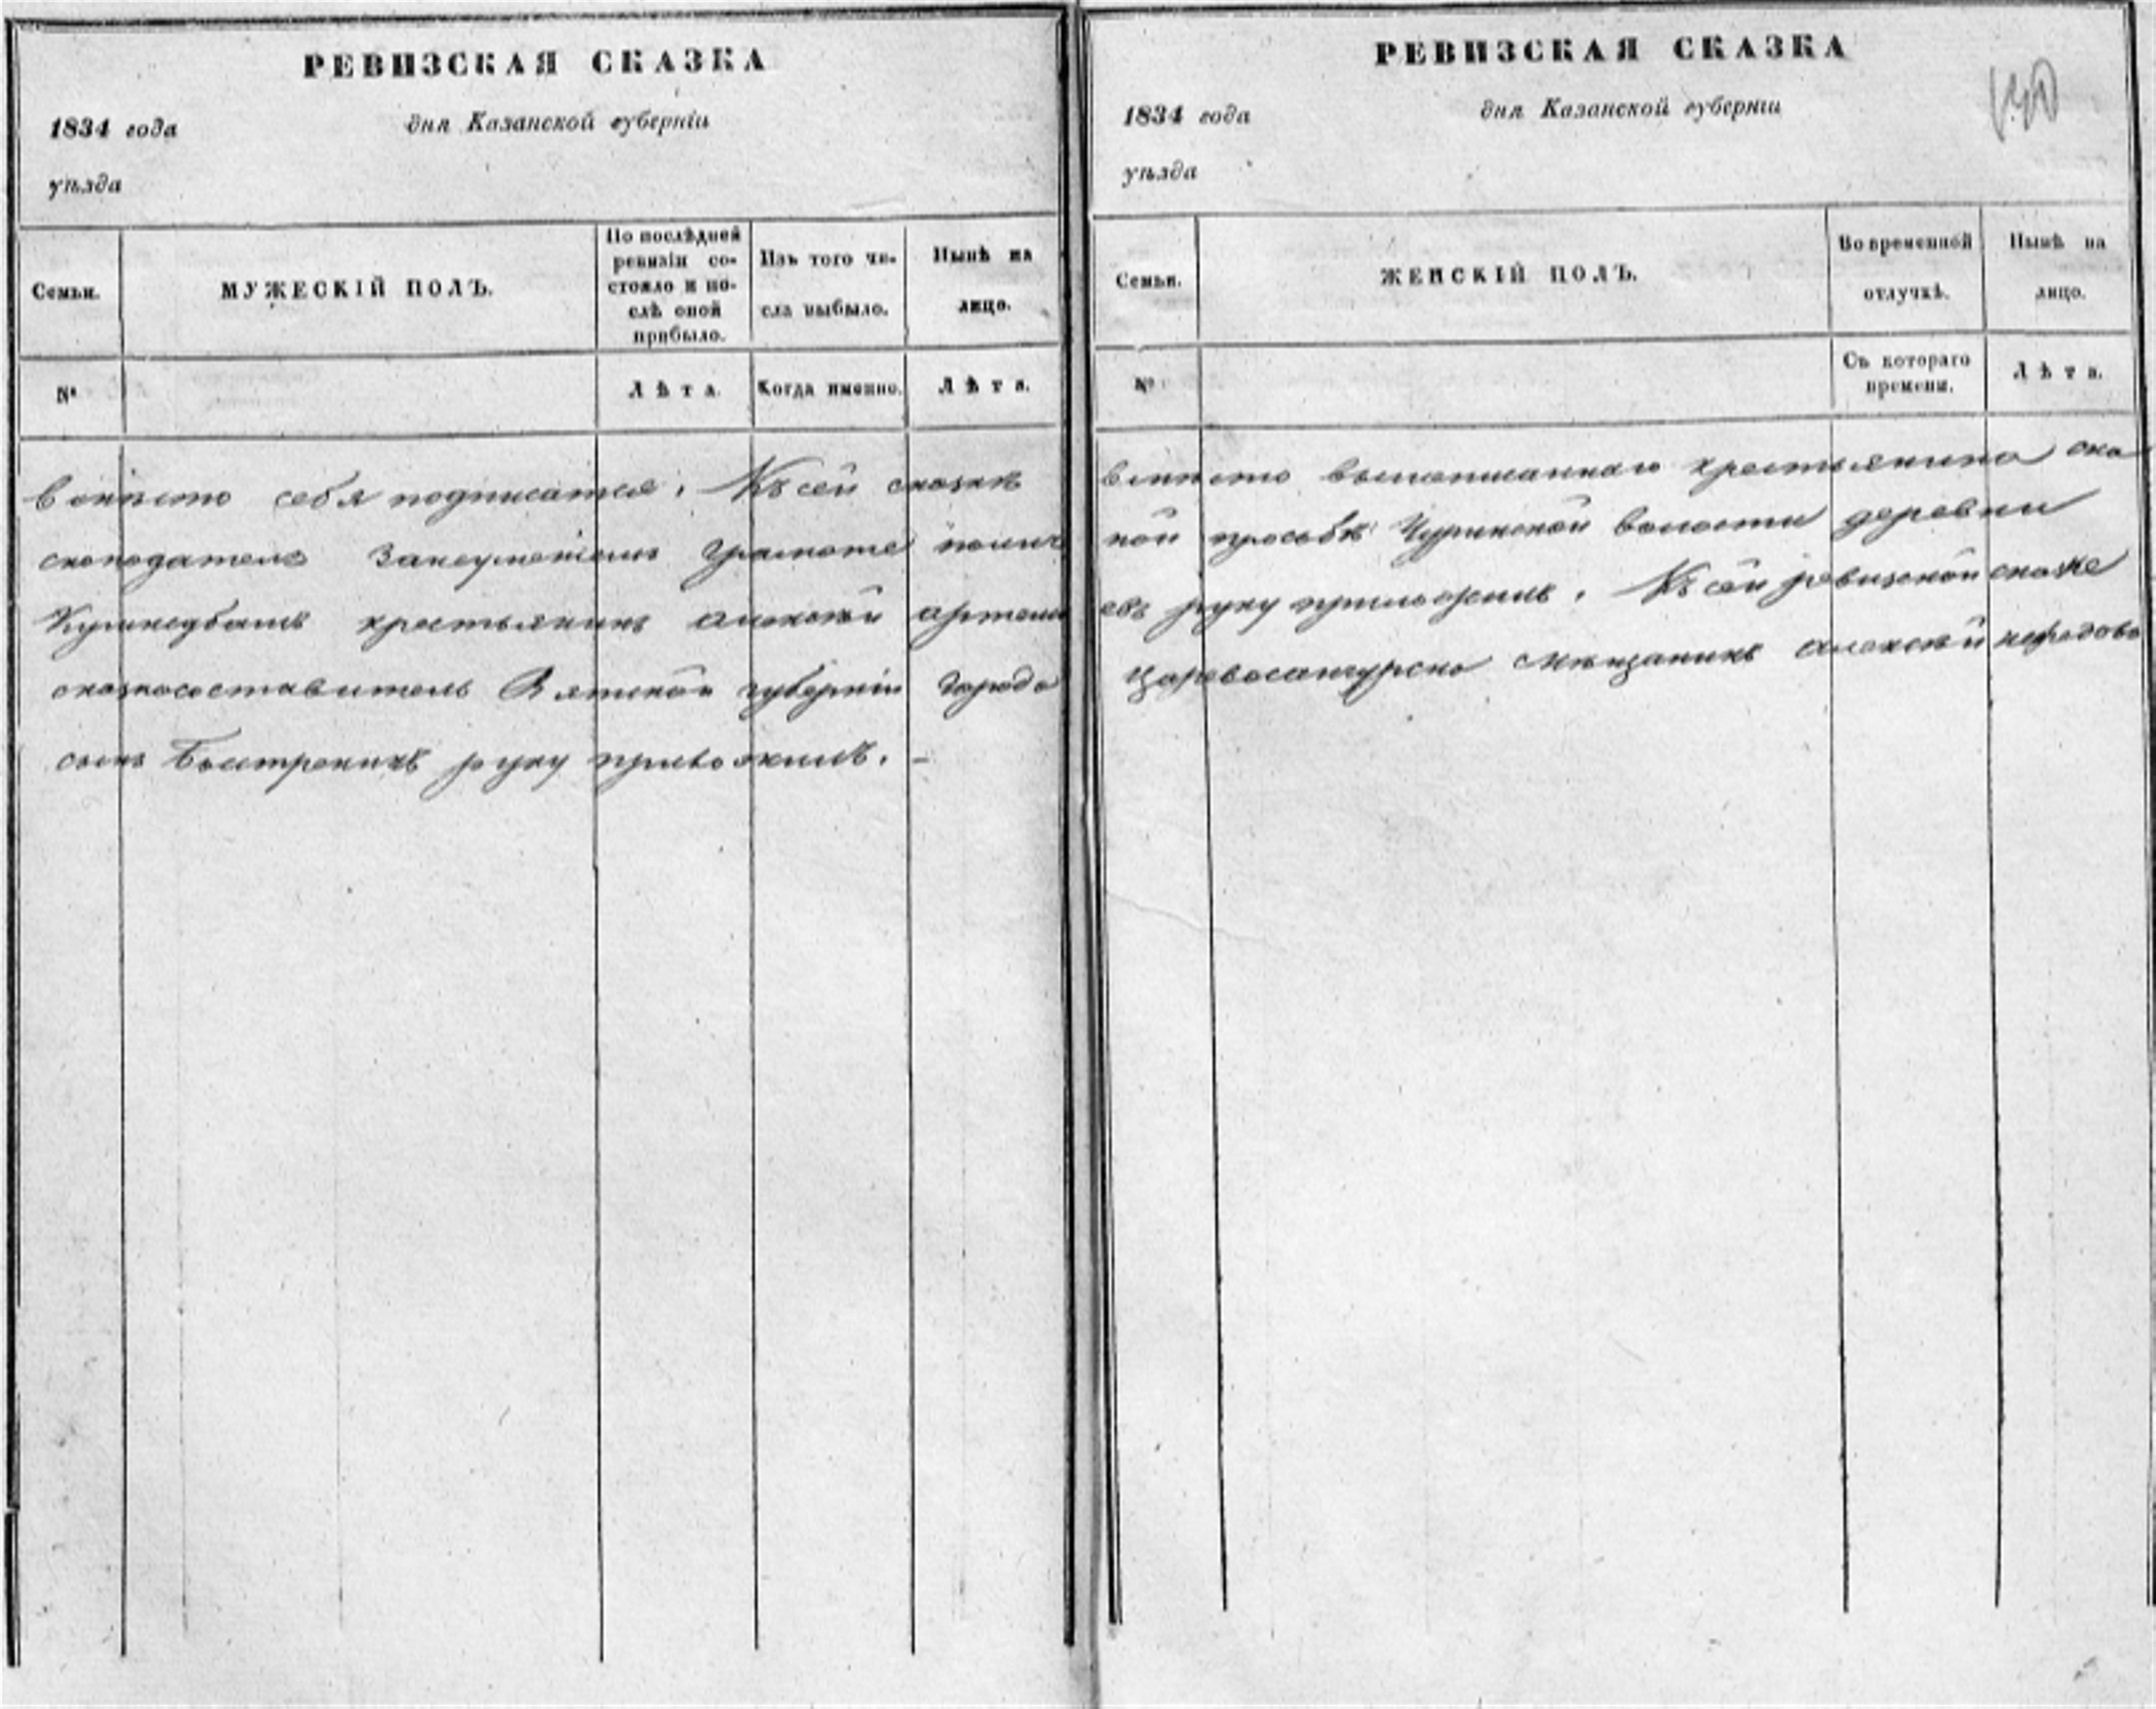 РЕВИЗСКАЯ СКАЗКА
1834 года дня Казанской губерніи
уѣзда
Семьи.
МУЖЕСКІЙ ПОЛЪ.
По послѣдней
ревизіи со-
стояло и по-
слѣ оной
прибыло.
Изъ того чи-
сла выбыло.
Нынѣ на
лицо.
№
Лѣта.
Когда именно.
Лѣта.
вмѣсто себя подписатся. Къ сей сказкѣ
скоподатель Занеумѣніемъ Грамоте
крестьянинъ алексѣй артемь
сказкосоставитель Вятской губерніи Города
сынъ Быстренинъ руку приложилъ. -
РЕВИЗСКАЯ СКАЗКА
1834 года дня Казанской губерніи
уѣзда
Семьи.
ЖЕНСКІЙ ПОЛЪ.
Во временной
отлучкѣ.
Нынѣ на
лицо.
№
Съ котораго
времени.
Лѣта.
вмѣсто крестьянина
ной просьбѣ волости деревни
евъ руку приложилъ. Къ сей ревизской скаске
Царевосанчурска мѣщанинъ алексѣй